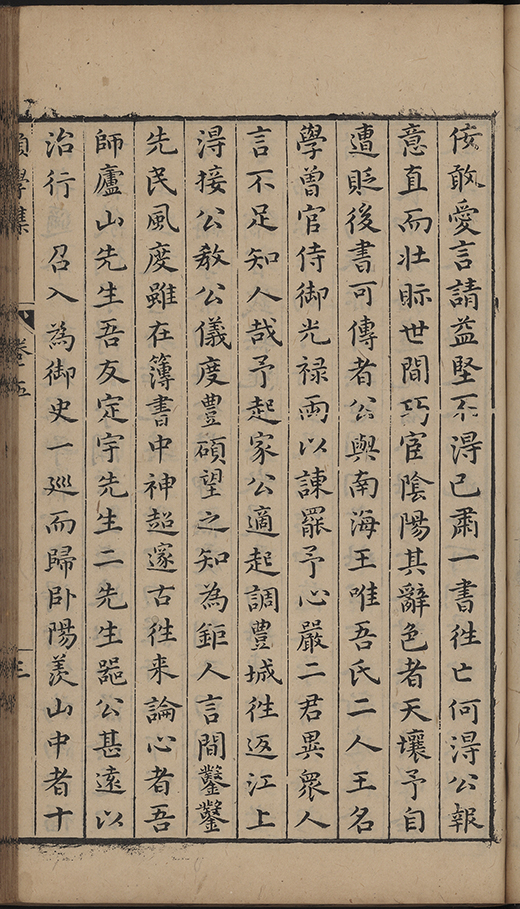 倿敢愛言請益堅不得已肅一書徃亡何得公報
意直而壯眎世間巧宦陰陽其辭色者天壤予自
遭貶後書可傳者公與南海王唯吾氏二人王名
學曾官侍御光禄両以諫罷予心嚴二君異衆人
言不足知人哉予起家公適起調豐城徃返江上
得接公教公儀度豐碩望之知為鉅人言間鑿鑿
先民風度雖在簿書中神超邃古徃来論心者吾
師廬山先生吾友定宇先生二先生噐公甚遠以
治行 召入為御史一廵而歸卧陽羨山中者十
願學集 卷之五